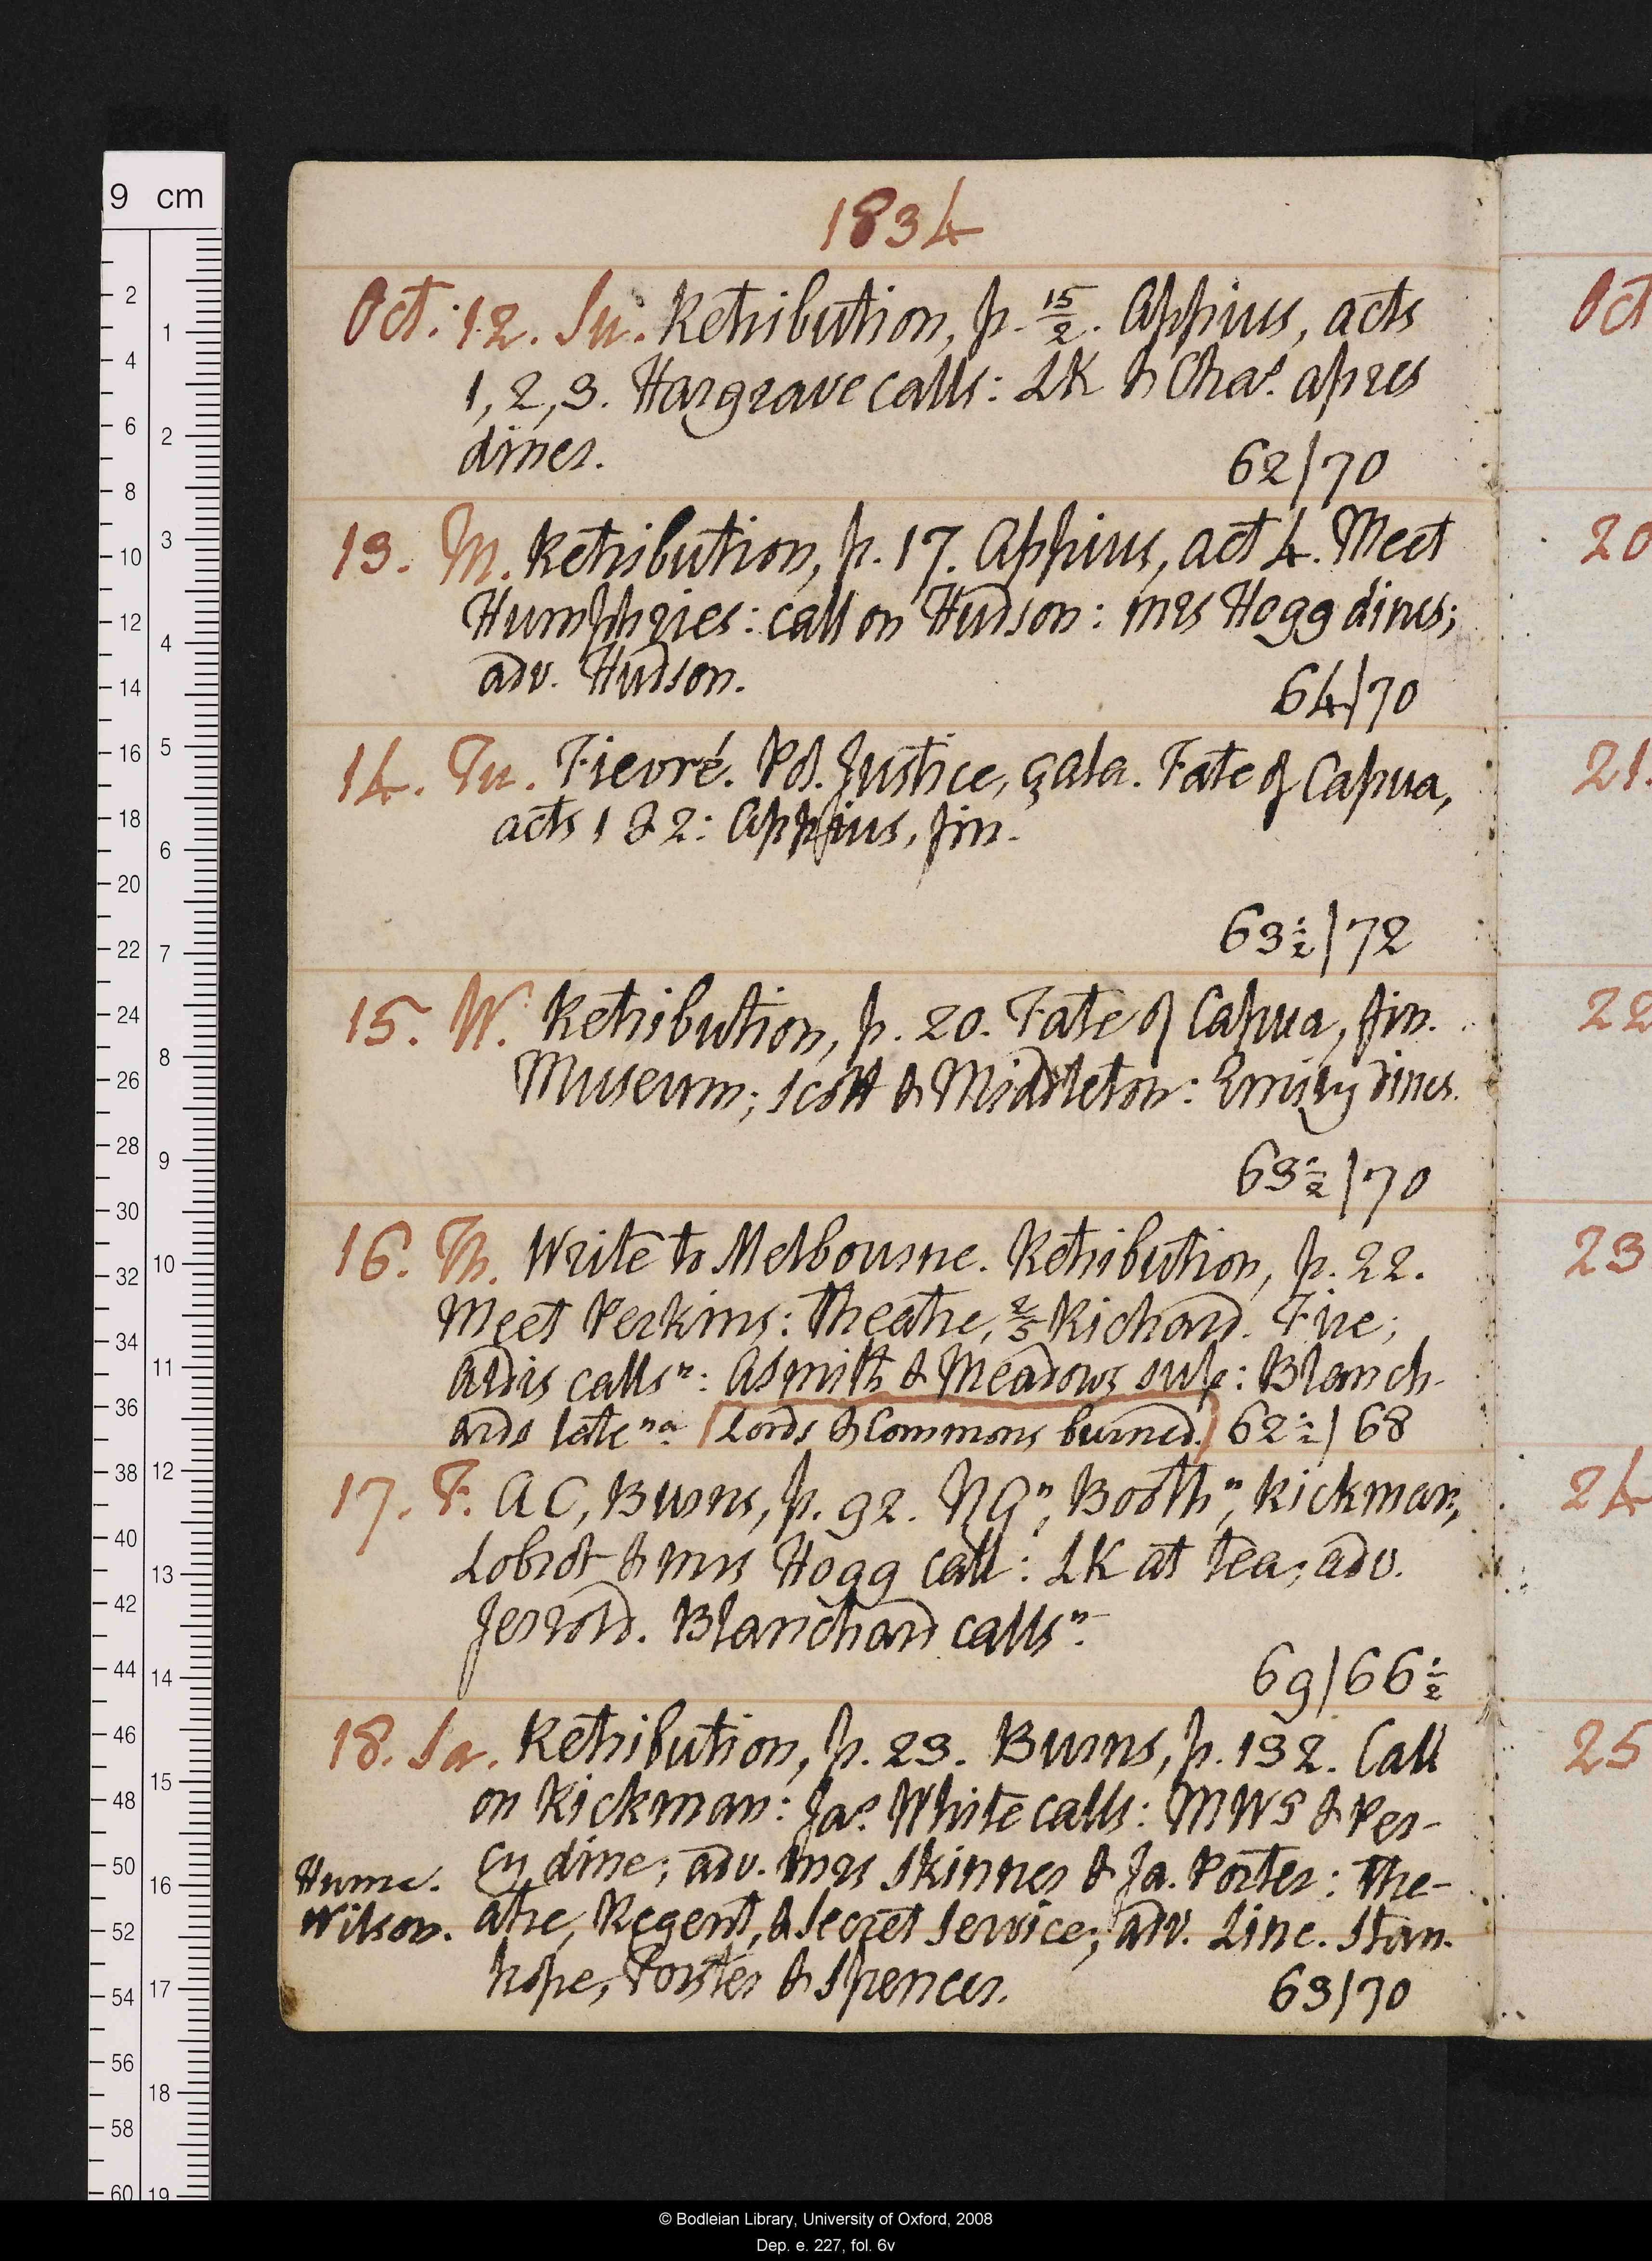 1834
Oct. 12. Su. Retribution, p. 15/2. Appius, acts
1, 2, 3. Hargrave calls: LK & Chas. apres
diner.
62/70
13. M. Retribution, p. 17. Appius, act 4. Meet
Humphries: call on Hudson: mrs Hogg dines;
adv. Hudson.
64/70
14. Tu. Fievré. Pol. Justice, çala. Fate of Capua,
acts 1 & 2: Appius, fin.
63½/72
15. W. Retribution, p. 20. Fate of Capua, fin.
Museum; Scott & Middleton: Emily dines.
63½/70
16. Th. Write to Melbourne. Retribution, p. 22.
Meet Perkins: Theatre, 2/5 Richard. Fire;
Ardis calls n: Asmith & Meadows sup: Blanch-
ards late na [Lords & Commons burned.] 62½/68
17. F. A C, Burns, p. 92. NG n, Booth n, Rickman,
Lobrot & mrs Hogg call: LK at tea; adv.
Jerrold. Blanchard calls n.
69/66½
18. Sa. Retribution, p. 23. Burns, p. 132. Call
on Rickman: Jas. White calls: MWS & Per-
cy dine; adv. mrs Skinner & Ja. Porter: The-
Hume.
atre, Regent, & Secret Service; adv. Linc. Stan-
Wilson.
hope, Forster & Spencer.
63/70
Oct
20
21.
22
23
24
25
9 cm
2
4
6
8
10
12
14
16
18
20
22
24
26
28
30
32
34
36
38
40
42
44
46
48
50
52
54
56
58
60
1
2
3
4
5
6
7
8
9
10
11
12
13
14
15
16
17
18
19
© Bodleian Library, University of Oxford, 2008
Dep. e. 227, fol. 6v